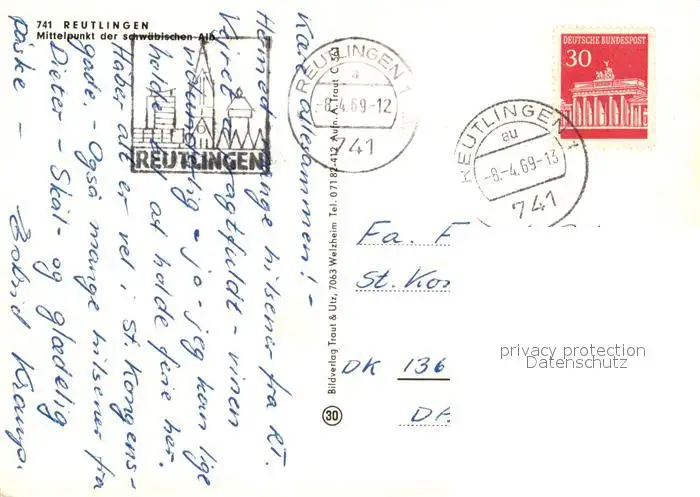 741 REUTLINGEN
Mittelpunkt der schwäbischen Alb
Kære allesammen! -
Hermed mange hilsener fra RT.
Livet er - vinen
vidunderlig - jo - jeg kan lige
holde ud at holde ferie her.
Håber alt er vel i St. Kongens-
gade. - Også mange hilsener fra
Dieter - Skål - og glædelig
påske -
REUTLINGEN
REUTLINGEN 1
a
-8.4.69-12
741
REUTLINGEN 1
au
-8.-4.69-13
741
DEUTSCHE BUNDESPOST
30
Bildverlag Traut & Utz, 7063 Welzheim Tel. 07182-412 Aufn. Traut C
30
Fa. F
St. Kon
DK 136
privacy protection
Datenschutz